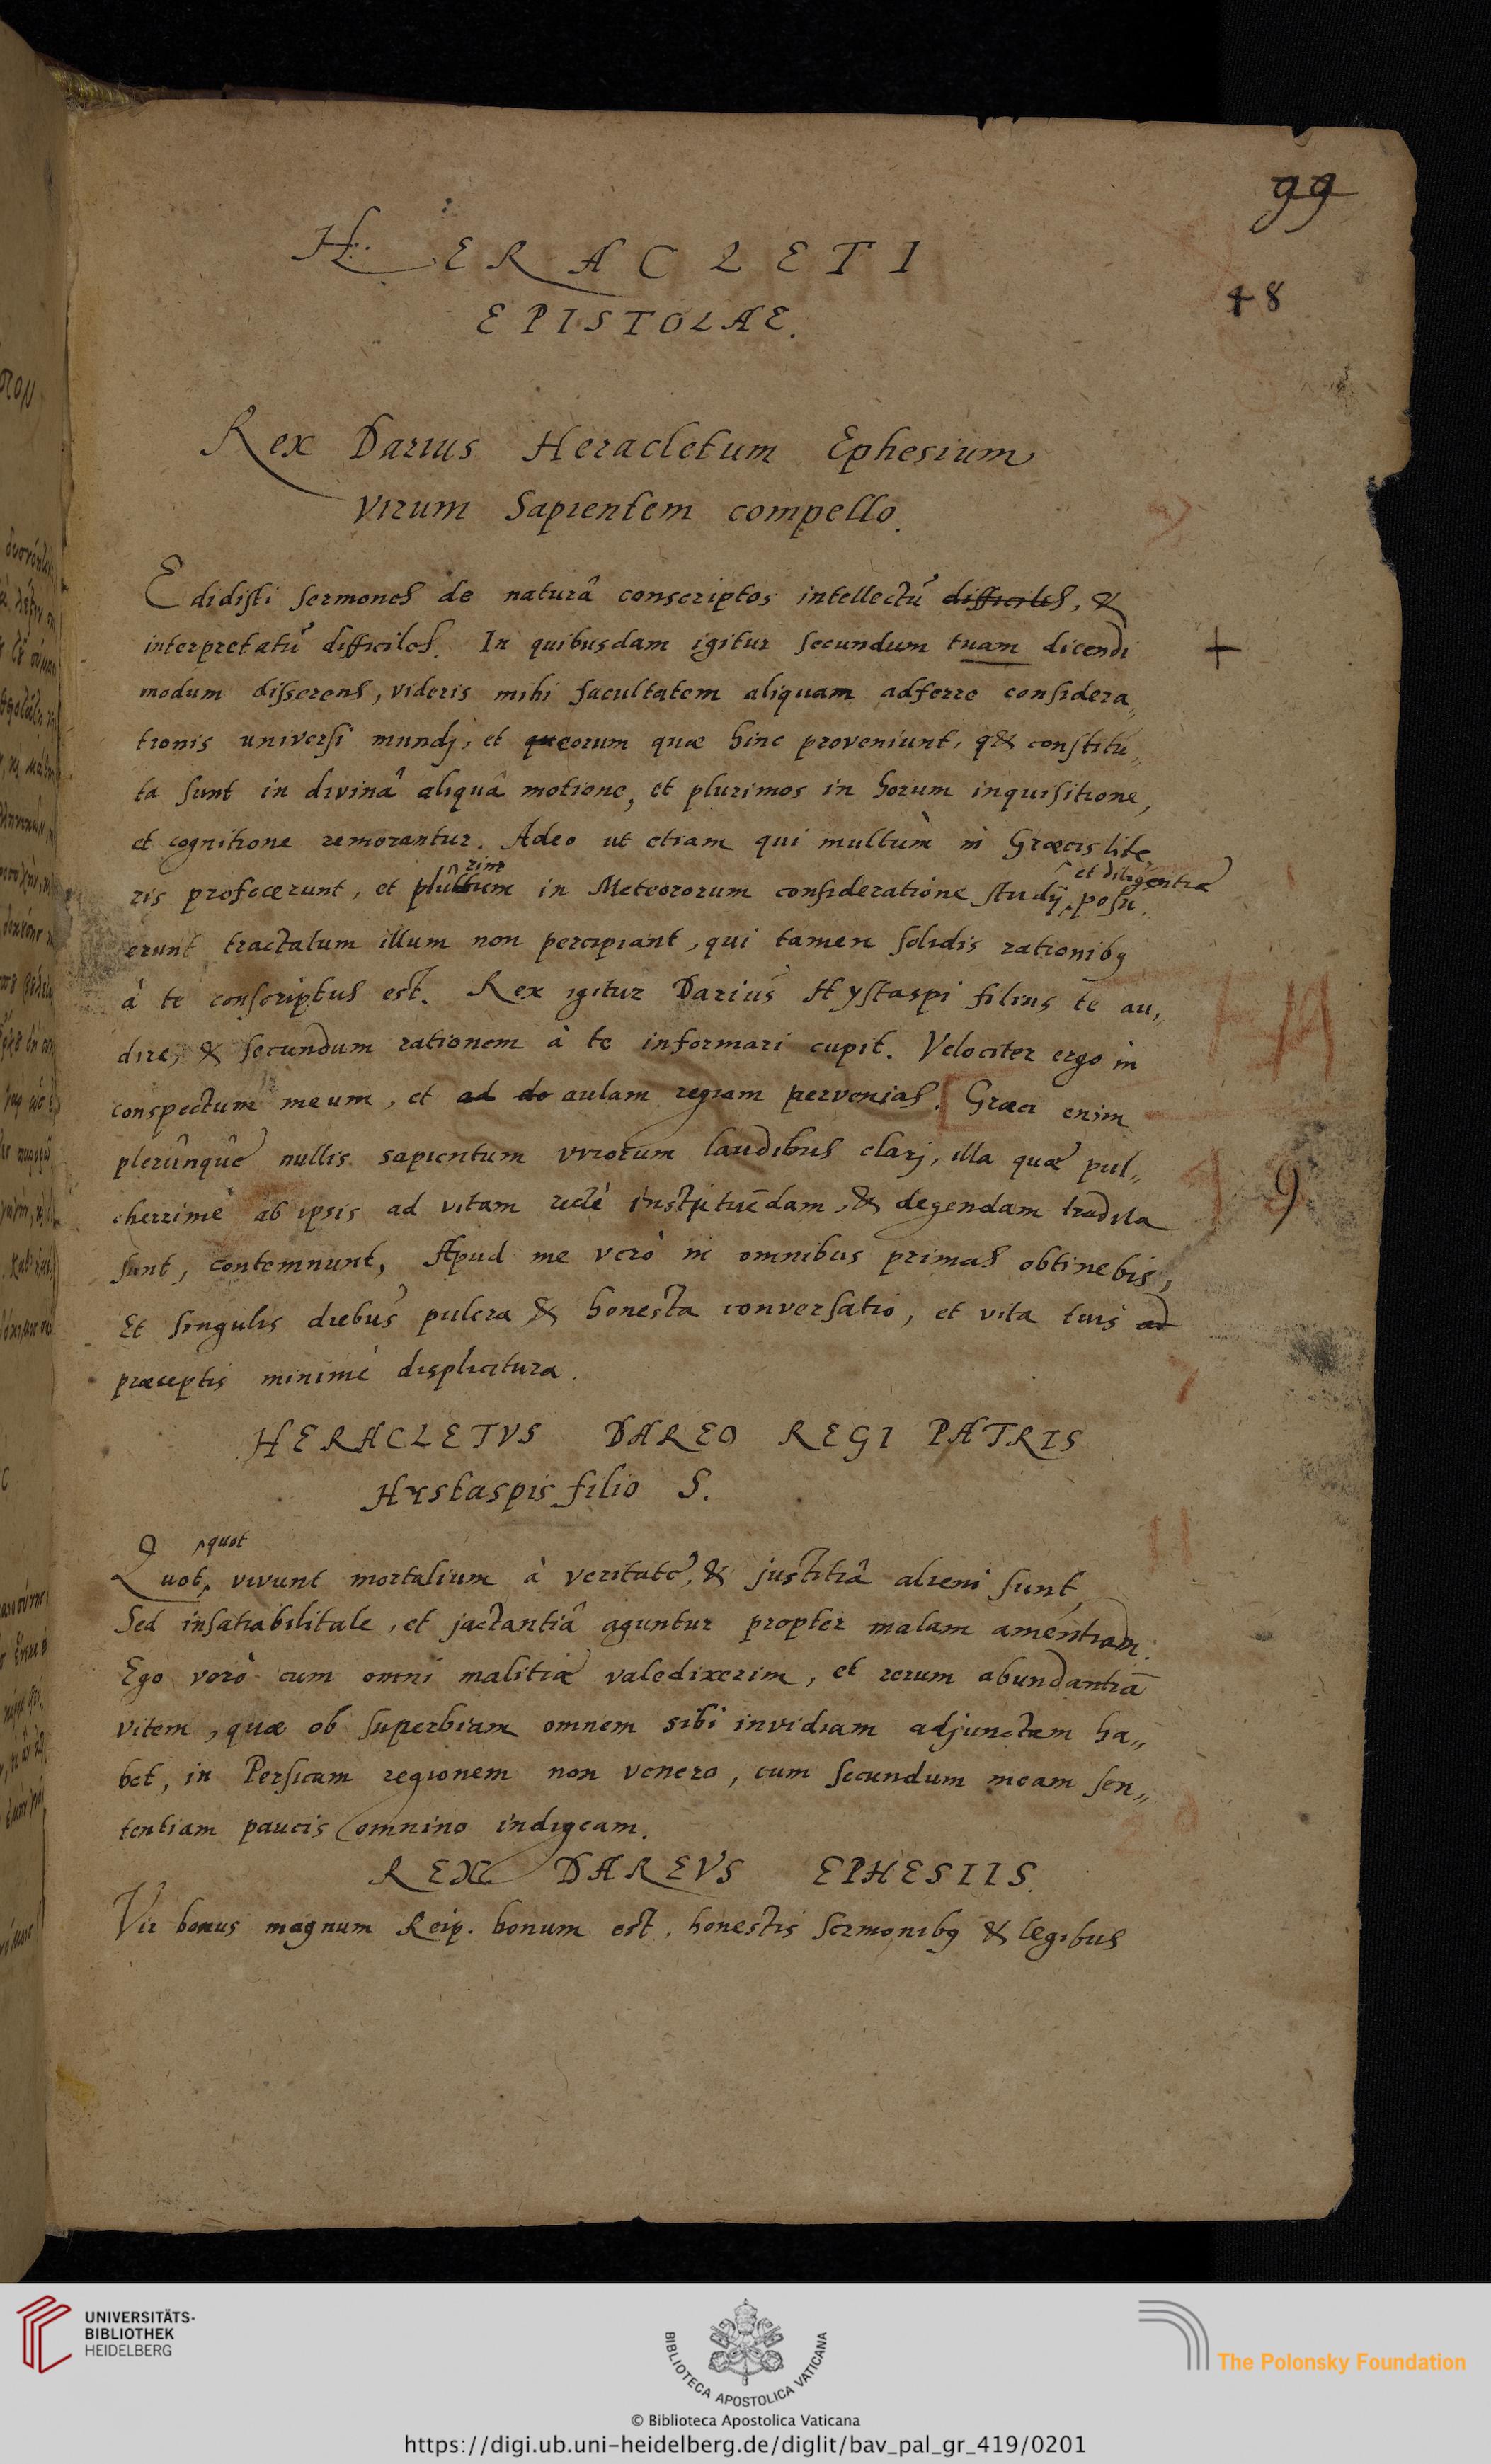 99
48
HERACLETI
EPISTOLAE.
Rex Darius Heracletum Ephesium
virum Sapientem compello.
Edidisti sermones de naturâ conscriptos intellectû difficiles, &
interpretatû difficiles. In quibusdam igitur secundum tuam dicendi +
modum disserens, videris mihi facultatem aliquam adferre considera„
tionis universi mundj, et queorum quæ hinc proveniunt, q& constitu„
ta sunt in divinâ aliquâ motione, et plurimos in horum inquisitione,
et cognitione remorantur. Adeo ut etiam qui multùm in Græcis lite„
rim et diligentiæ
ris profecerunt, et plurimum in Meteororum consideratione studij posu„
erunt tractatum illum non percipiant, qui tamen solidis rationibq
à te conscriptus est. Rex igitur Darius Hystaspi filius te au„
dire, & secundum rationem à te informari cupit. Velociter ergo in
conspectum meum, et ad do aulam regiam pervenias. Græci enim
plerûnque nullis sapientum virorum laudibus clarj, illa quæ pul„
cherrimè ab ipsis ad vitam rectè instituēdam, & degendam tradita 9
sunt, contemnunt, Apud me verò in omnibus primas obtinebis,
Et singulis diebus pulcra & honesta conversatio, et vita tuis ad
præceptis minimè displicitura.
HERACLETVS DAREO REGI PATRIS
Hystaspis filio S.
quot
Quot vivunt mortalium à veritate, & justitiâ alieni sunt,
Sed insatiabilitate, et jactantiâ aguntur propter malam amentiam.
Ego verò cum omni malitiæ valedixerim, et rerum abundantiā
vitem, quæ ob superbiam omnem sibi invidiam adjunctam ha„
bet, in Persicam regionem non venero, cum secundum meam sen„
tentiam paucis omnino indigeam.
REX DAREVS EPHESIIS.
Vir bonus magnum Reip. bonum est, honestis sermonibq & legibus
UNIVERSITÄTS-
BIBLIOTHEK
HEIDELBERG
BIBLIOTECA APOSTOLICA VATICANA
The Polonsky Foundation
© Biblioteca Apostolica Vaticana
https://digi.ub.uni-heidelberg.de/diglit/bav_pal_gr_419/0201